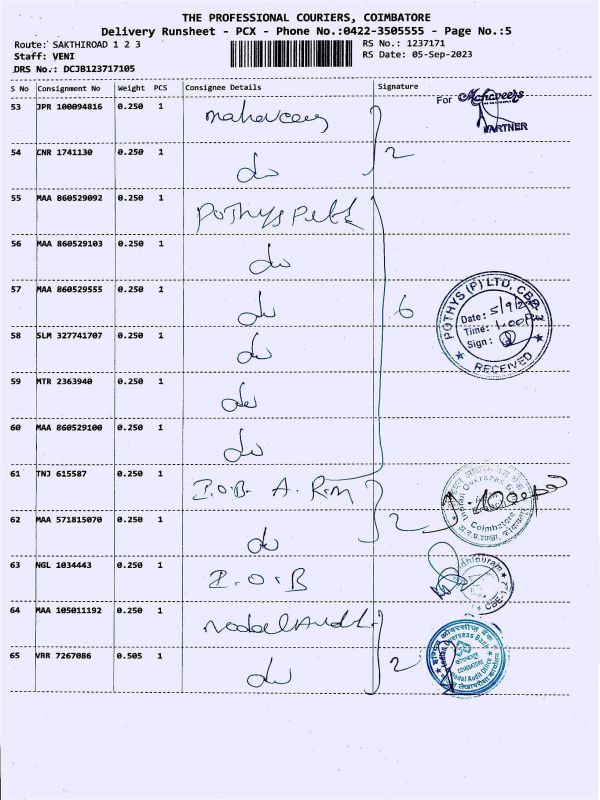 THE PROFESSIONAL COURIERS, COIMBATORE
Delivery Runsheet - PCX - Phone No.:0422-3505555 - Page No.:5
Route: SAKTHIROAD 1 2 3 RS No.: 1237171
Staff: VENI RS Date: 05-Sep-2023
DRS No.: DCJB123717105
S No Consignment No Weight PCS Consignee Details Signature
53 JPR 100094816 0.250 1 Mahaveers For Mahaveers
PARTNER
54 CNR 1741130 0.250 1 do 2
55 MAA 860529092 0.250 1 Pothys
56 MAA 860529103 0.250 1 do
57 MAA 860529555 0.250 1 do 6 POTHYS (P) LTD, CBE
Date: 5/9/2
Time: 1.00
Sign:
RECEIVED
58 SLM 327741707 0.250 1 do
59 MTR 2363940 0.250 1 do
60 MAA 860529100 0.250 1 do
61 TNJ 615587 0.250 1 I.O.B. A. R.M
Indian Overseas
Coimbatore
62 MAA 571815070 0.250 1 do 2
63 NGL 1034443 0.250 1 I.O.B
64 MAA 105011192 0.250 1 Nodal Audit
Indian Overseas Bank
COIMBATORE
Nodal Audit Office
65 VRR 7267086 0.505 1 do 2